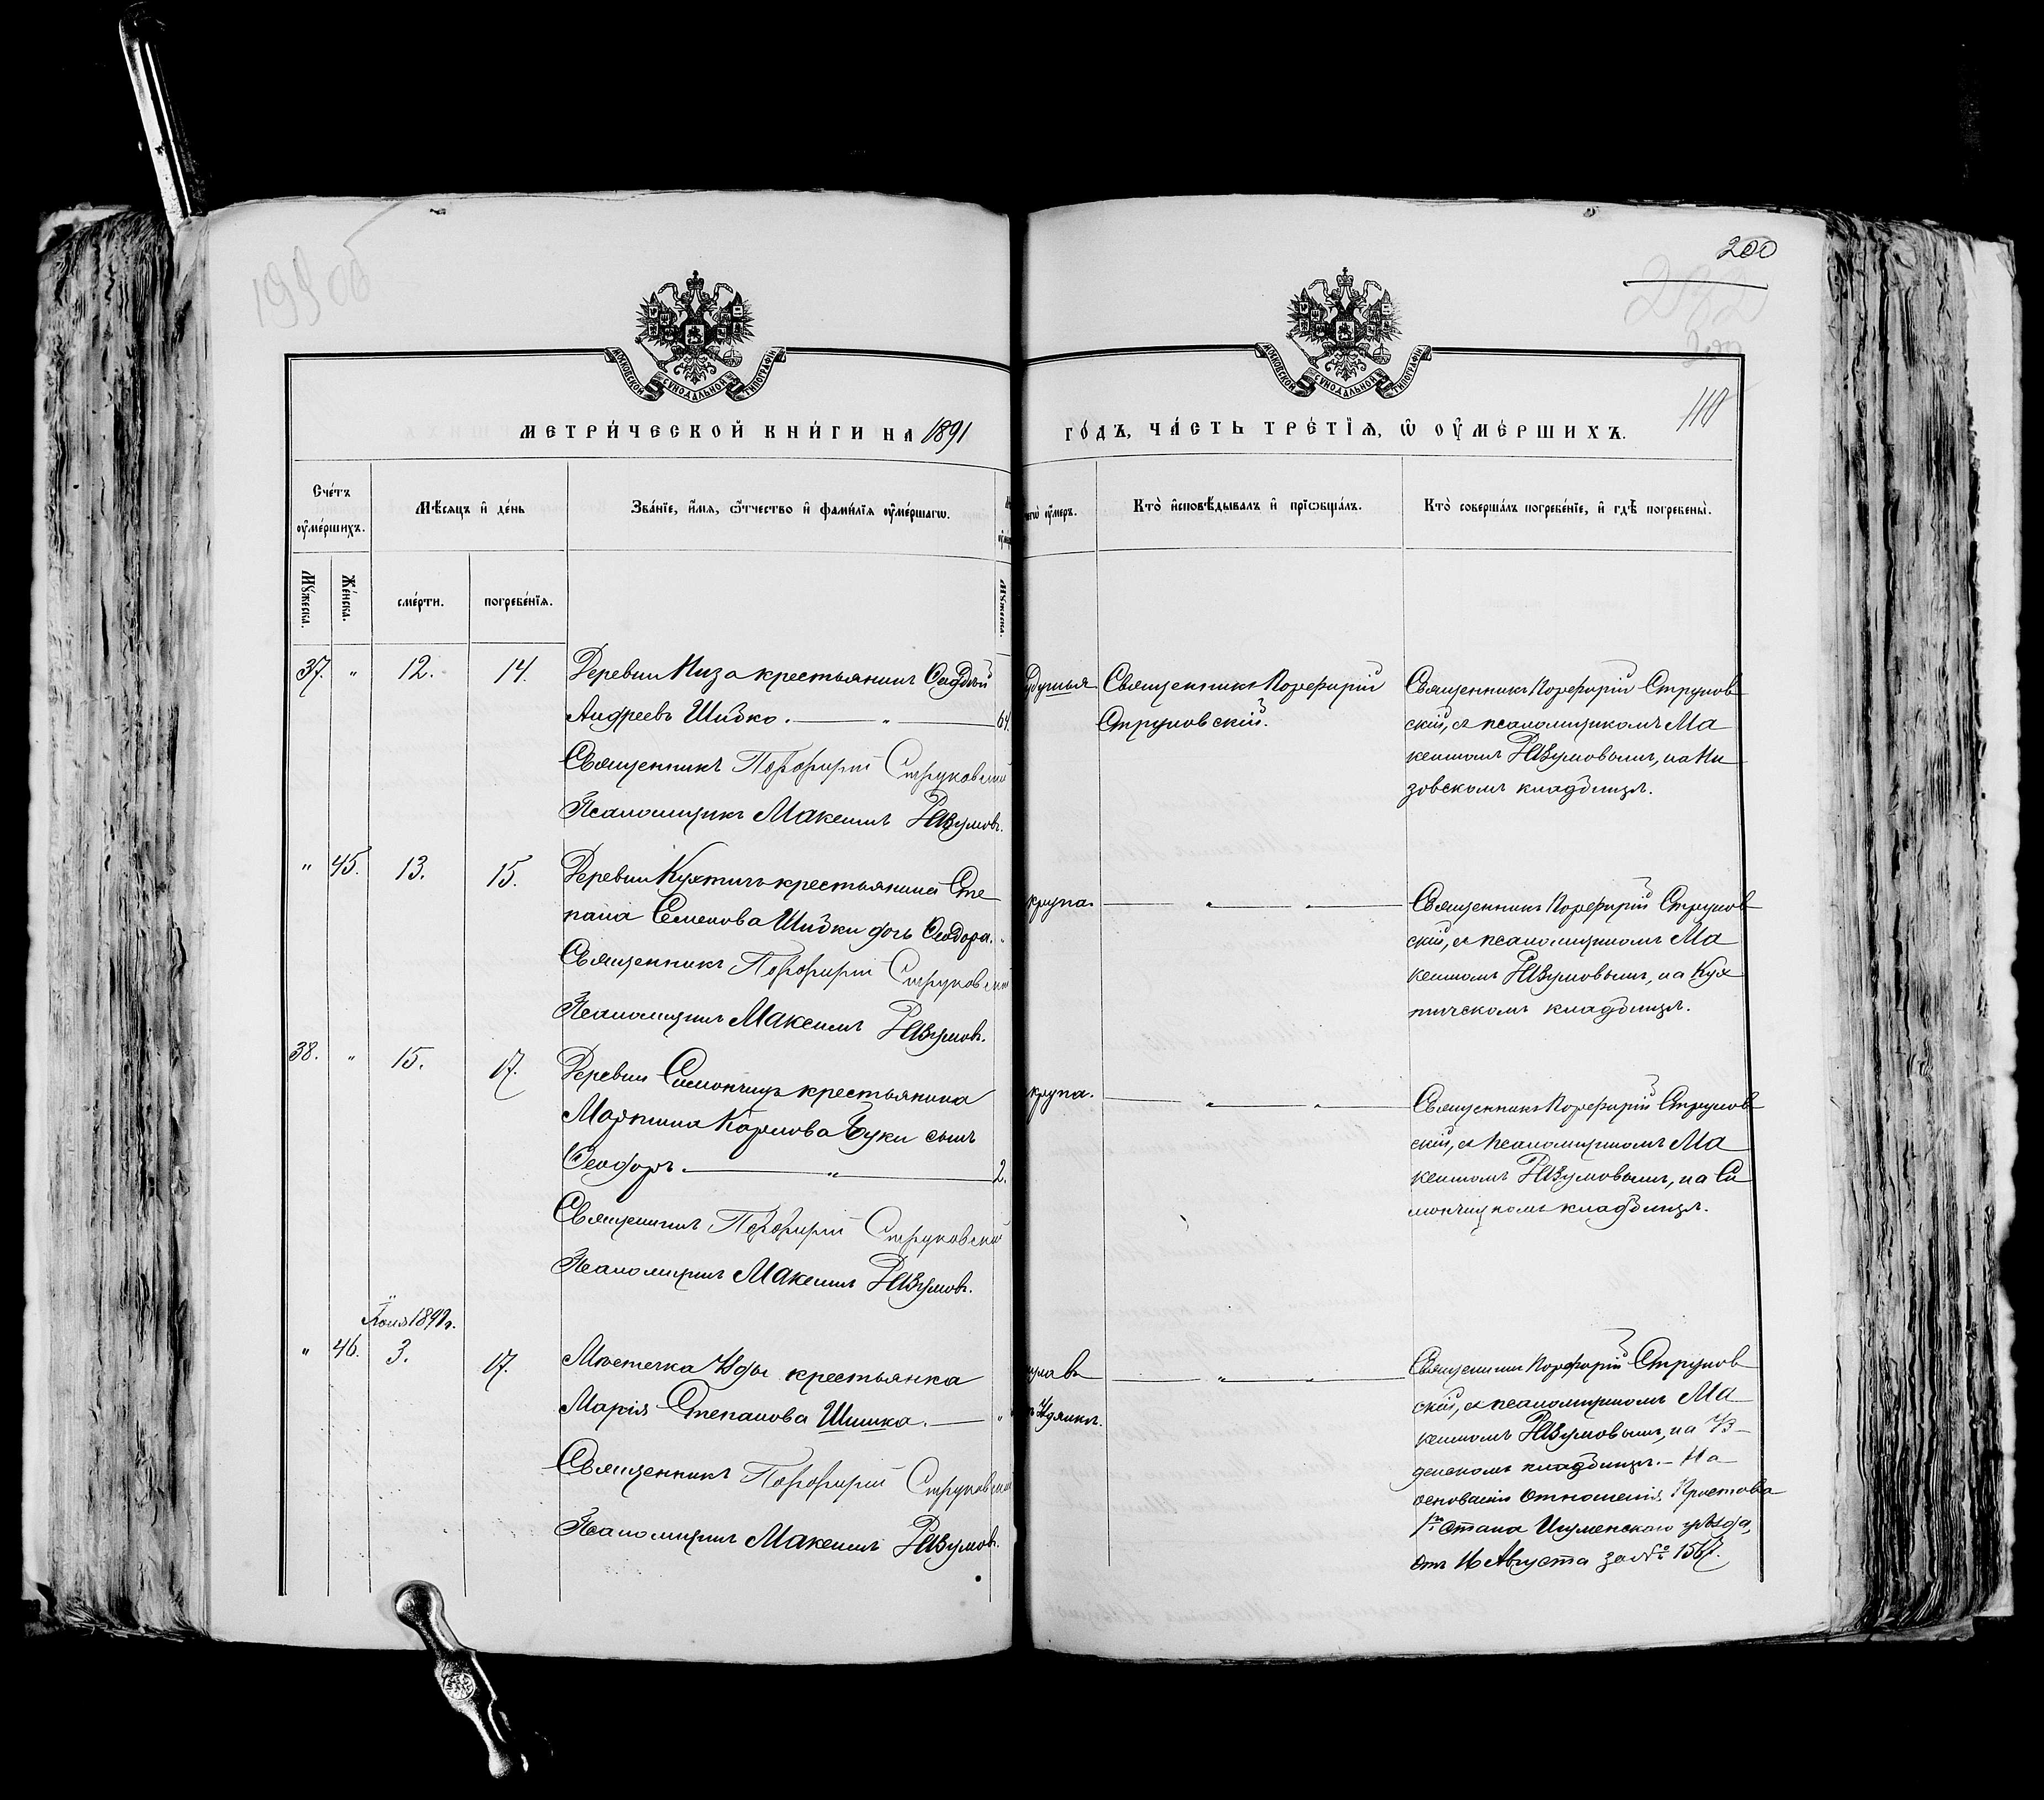 199 об
200
МОСКОВСКОЙ СѴНОДАЛЬНОЙ ТИПОГРАФІИ
МОСКОВСКОЙ СѴНОДАЛЬНОЙ ТИПОГРАФІИ
110
МЕТРИ́ЧЕСКОЙ КНИ́ГИ НА 1891
ГО́ДЪ, ЧА́СТЬ ТРЕ́ТІѦ, Ѡ҆ ОУ҆МЕ́РШИХЪ.
Сче́тъ оу҆ме́ршихъ.
Мѣ́сѧцъ и҆ де́нь
Зва́нїе, и҆́мѧ, ѻ҆́тчество и҆ фами́лїѧ оу҆ме́ршагѡ.
чегѡ̀ оу҆́меръ.
Кто̀ и҆сповѣ́дывалъ и҆ прїѡбща́лъ.
Кто̀ соверша́лъ погребе́нїе, и҆ гдѣ̀ погребены̀.
Мꙋ́жеска.
Же́нска.
сме́рти.
погребе́нїѧ.
Мꙋ́жеска.
37. " 12. 14.
Деревни Низа крестьянинъ Фаддей
Андреевъ Шибко. — " — 64.
Священникъ Порфирій Струковскій
Псаломщикъ Максимъ Наумовъ.
удушья
Священникъ Порфирій
Струковскій.
Священникъ Порфирій Струков
скій, съ псаломщикомъ Ма
ксимомъ Наумовымъ, на Ни
зовскомъ кладбищѣ.
" 45. 13. 15.
Деревни Кухтичъ крестьянина Сте
пана Семенова Шибки дочь Феодора. "
Священникъ Порфирій Струковскій
Псаломщикъ Максимъ Наумовъ.
крупа. — " — " —
Священникъ Порфирій Струков
скій, съ псаломщикомъ Ма
ксимомъ Наумовымъ, на Кух
тичскомъ кладбищѣ.
38. " 15. 17.
Деревни Симончицъ крестьянина
Мартина Карлова Буки сынъ
Феодоръ. — " — 2.
Священникъ Порфирій Струковскій
Псаломщикъ Максимъ Наумовъ.
крупа. — " — " —
Священникъ Порфирій Струков
скій, съ псаломщикомъ Ма
ксимомъ Наумовымъ, на Си
мончицкомъ кладбищѣ.
" 46. 3. 17.
Мѣстечка Узды крестьянка
Марія Степанова Шишка. — "
Священникъ Порфирій Струковскій
Псаломщикъ Максимъ Наумовъ.
— " — " —
Священникъ Порфирій Струков
скій, съ псаломщикомъ Ма
ксимомъ Наумовымъ, на Уз
денскомъ кладбищѣ. — На
основаніи отношенія Пристава
1го Стана Игуменскаго уѣзда,
отъ 16 Августа за № 1567.